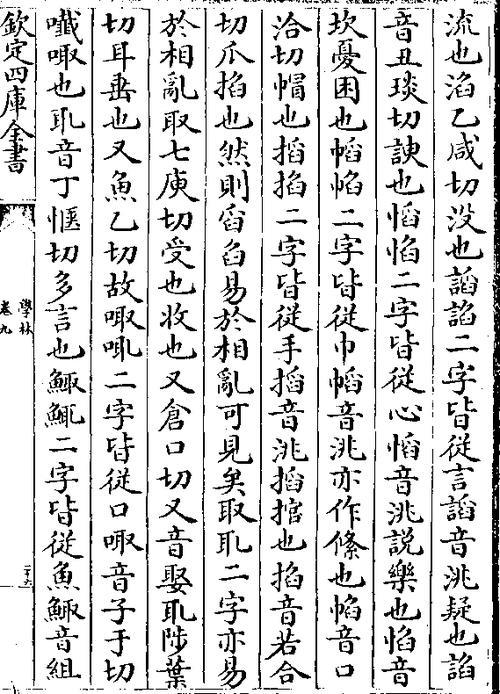 流也淊乙咸切没也謟諂二字皆從言謟音洮疑也諂
音丑琰切諛也慆惂二字皆從心慆音洮說樂也惂音
坎憂困也幍㡊二字皆從巾幍音洮亦作絛也㡊音口
洽切帽也搯掐二字皆從手搯音洮搯捾也掐音若合
切爪掐也然則舀臽易於相亂可見矣取耴二字亦易
於相亂取七庾切受也收也又倉口切又音娶耴陟葉
切耳垂也又魚乙切故㖩㖇二字皆從口㖩音子于切
囋㖩也㖇音丁愜切多言也鯫鮿二字皆從魚鯫音組
欽定四庫全書
學林
卷九
二十六